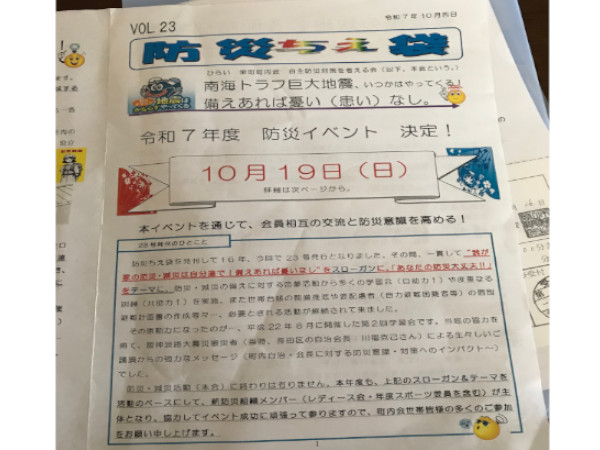 VOL.23
令和7年10月吉日
防災ちえ袋
南海トラフ巨大地震、いつかはやってくる!
備えあれば憂い(患い)なし。
令和7年度 防災イベント 決定!
10月19日(日)
詳細は次ページから。
本イベントを通じて、会員相互の交流と防災意識を高める!
23号発刊のひとこと
防災ちえ袋を発刊して16年、今回で23号発行となりました。その間、一貫して“我が
家の防災・減災は自分達で!備えあれば憂いなし”をスローガンに、「あなたの防災大丈夫!!」
をテーマに、防災・減災の備えに対する啓蒙活動から多くの学習会(自助力1)や度重なる
訓練(共助力1)を実施、また世帯台帳の整備推進や要配慮者(自力避難困難者等)の個別
避難計画書の作成等々…、必要とされる活動が継続されて来ました。
その原動力になったのが…、平成22年6月に開催した第2回学習会です。市総の協力を
得て、阪神淡路大震災被災者(当時、長田区の自治会長 さん)による生々しいご
講話からの強力なメッセージ(町内自治・会長に対する防災意識・対策へのインパクト~)
でした。
防災・減災活動(本会)に終わりは有りません。本年度も、上記のスローガン&テーマを
活動のベースにして、新防災組織メンバー(レディース会・年度スポーツ委員を含む)が主
体となり、協力してイベント成功に頑張って参りますので、町内会世帯皆様の多くのご参加
をお願い申し上げます。
1